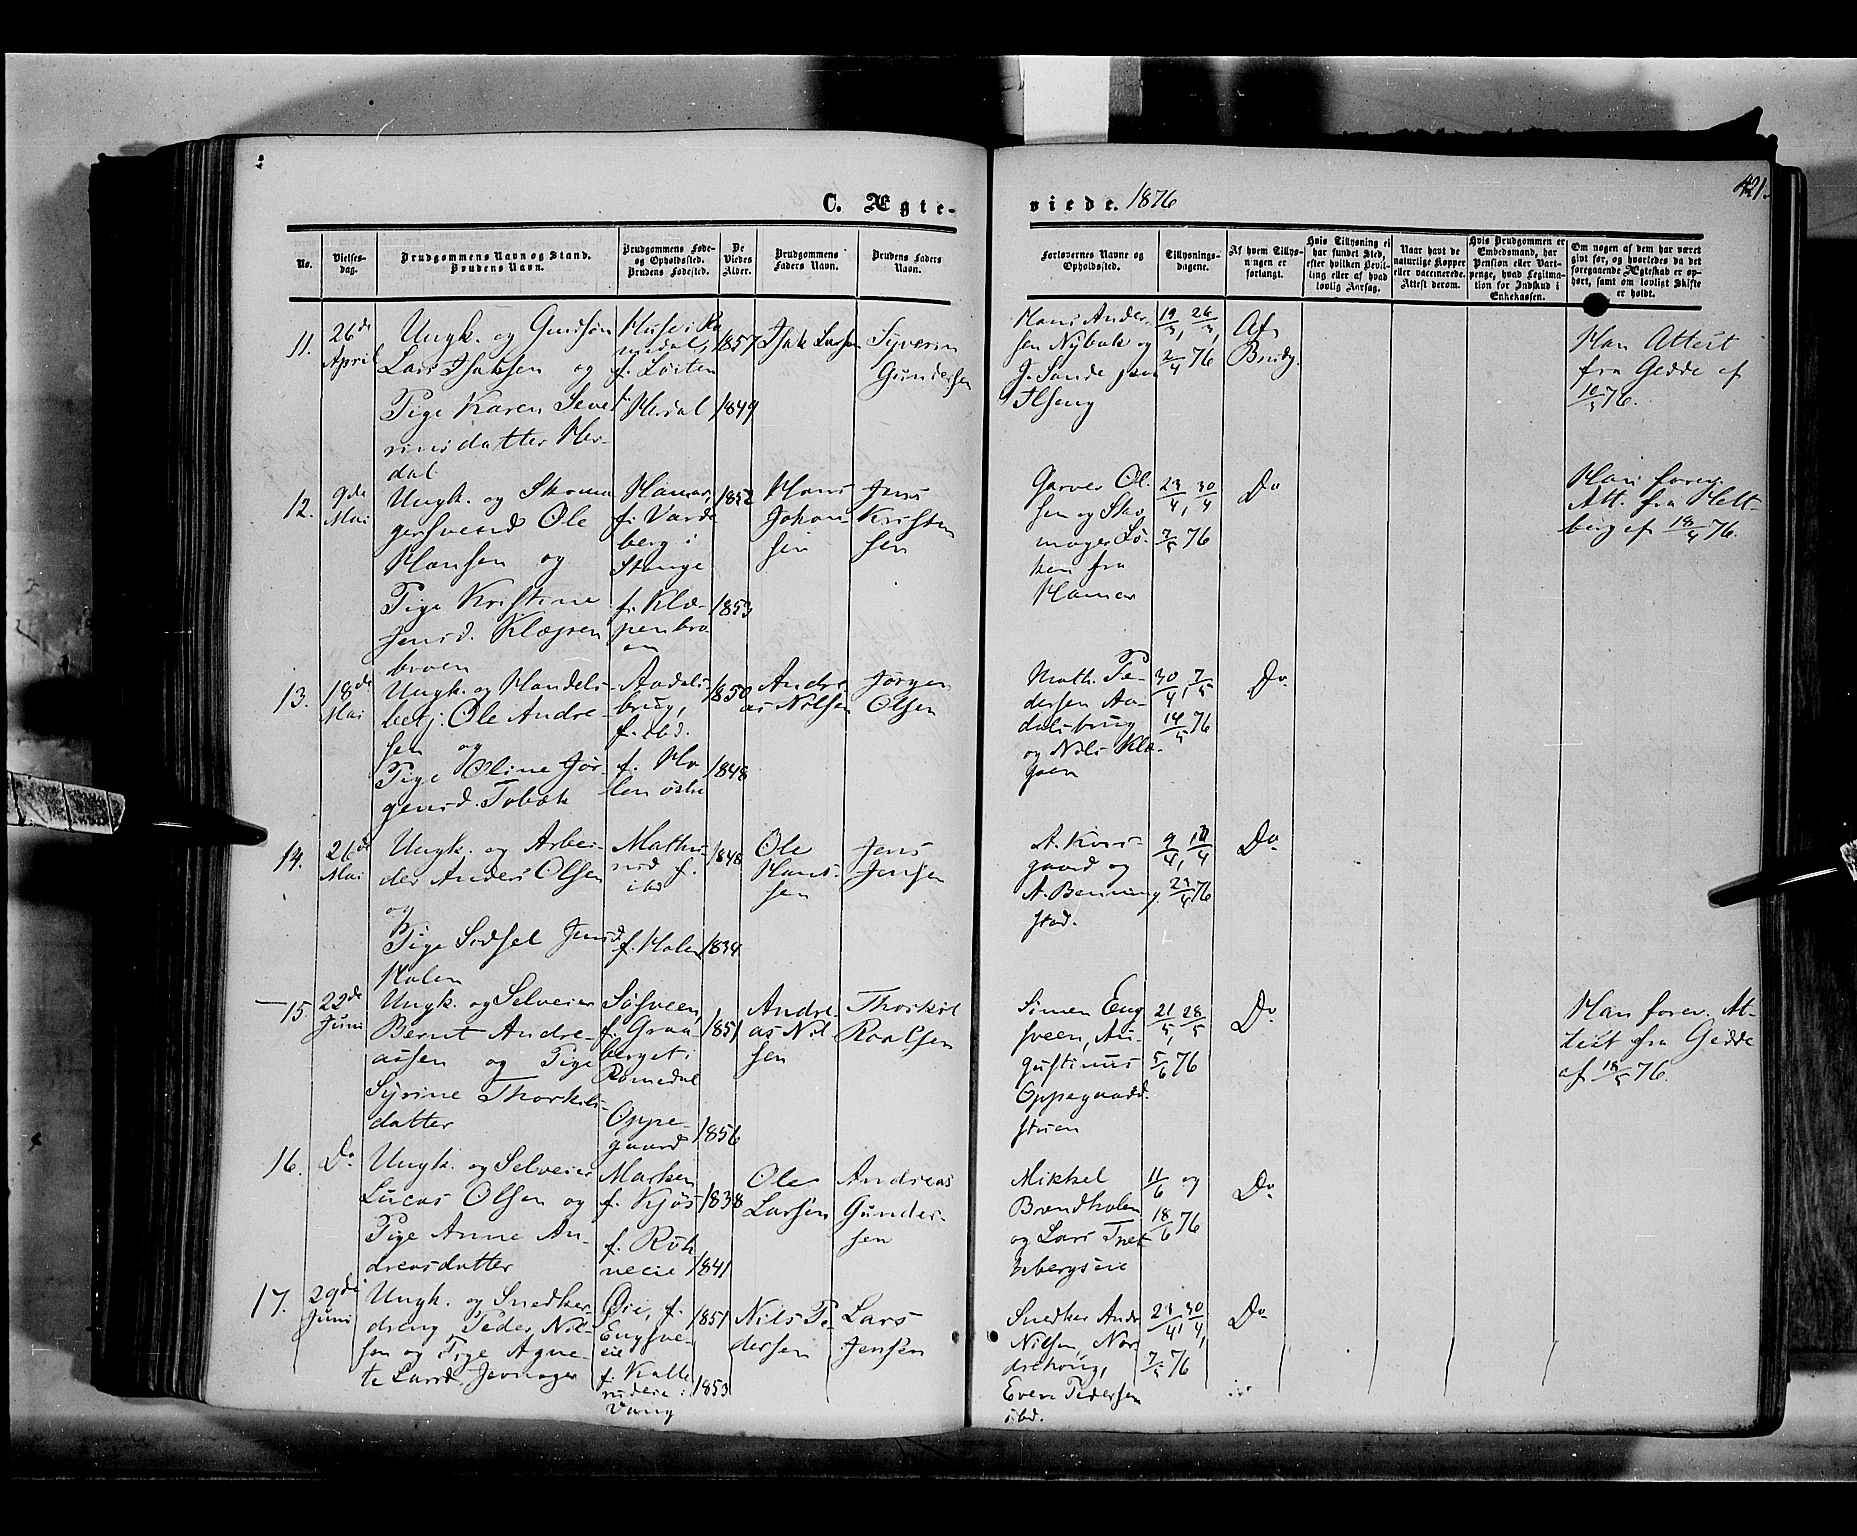 421.
C. Ægte-
viede. 1876
No.
Vielses-
dag.
Brudgommens Navn og Stand.
Brudens Navn.
Brudgommens Føde-
og Opholdssted.
Brudens Fødested.
De
Viedes
Alder.
Brudgommens
Faders Navn.
Brudens Faders
Navn.
Forlovernes Navne og
Opholdssted.
Tillysnings-
dagene.
Af hvem Tillys-
ningen er
forlangt.
Hvis Tillysning ei
har fundet Sted,
efter hvilken Bevil-
ling eller af hvad
lovlig Aarsag.
Naar havt de
naturlige Kopper
eller vaccinerede.
Attest derom.
Hvis Brudgommen er
Embedsmand, har
Pension eller Vart-
penge, hvad Legitima-
tion for Indskud i
Enkekassen.
Om nogen af dem har været
gift før, og hvorledes da det
foregaaende Ægteskab er op-
hørt, samt om lovligt Skifte
er holdt.
11.
26de
April
Ungk. og
Lars Isaksen og
Tige Karen Seve-
rinsdatter Her-
dal
f. Løiten
Herdal
1857
1849
Isak Larsen
Syverin
Gundersen
Hans Ander-
sen Nybak og
J. Sande paa
Ilseng
19/3, 26/3,
2/4 76
Af
Brudg.
Han Attest
fra Gedde af
10/3 76.
12.
9de
Mai
Ungk. og Skoma
gersvend Ole
Hansen og
Pige Kristine
Jensd. Klæpen
broen
Hamar,
f. Varde
berg i
Stange
f. Klæ-
penbro
en
1852
1853
Hans
Johan-
sen
Jens
Kristen
sen
Garver Ol-
sen og Sko
mager Lø-
ken fra
Hamar
23/4, 30/4
7/5 76
Do
Han forev.
Att. fra Helt-
berg af 18/4 76.
13.
18de
Mai
Ungk. og Handels-
betj. Ole Andre-
sen og
Pige Oline Jør-
gensd. Tobæk
Aadals-
brug,
f. ibd.
f. Ho
len østre
1850
1848
Andre
as Nilsen
Jørgen
Olsen
Math. Pe-
dersen Aa-
dalsbrug
og Nils Klæ-
paen
30/4, 7/5
14/5 76
Do
14.
26de
Mai
Ungk. og Arbei-
der Anders Olsen
og
Pige Sidsel Jensd.
Holen
Mathis-
rud f.
ibd
f. Holen
1848
1834
Ole
Hans-
sen
Jens
Jensen
A. Kors-
gaard og
A. Benning
stad.
9/4, 17/4
23/4 76
Do
15.
22de
Juni
Ungk. og Selveier
Bernt Andre-
assen og Pige
Syrine Thorkils-
datter
Søsveen,
f. Graa
berget i
Romedal
Oppe-
gaard
1851
1856
Andre
as Nil
sen
Thorkil
Roalsen
Simen Eng
sveen, Au-
gustinus
Oppegaard
stuen
21/5, 28/5
5/6 76
Do
Han forev. At-
test fra Gedde
af 18/5 76.
16.
Do
Ungk. og Selveier
Lucas Olsen og
Pige Anne An-
dreasdatter
Morken
f. Kjøs
f. Røh
neeie
1838
1841
Ole
Larsen
Andreas
Gunder-
sen
Mikkel
Brendholen
og Lars Tret
bergseie
11/6 og
18/6 76
Do
17.
29de
Juni
Ungk. og Snedker-
dreng Peder Nil-
sen og Pige Agne-
te Larsd. Jevnager
Øie, f.
Engsve-
eie
f. Kalle
rudeie i
Vang
1851
1853
Nils Pe-
dersen
Lars
Jensen
Snedker Andr
Nilsen, Nor
drehoug,
Even Pedersen
ibd.
23/4, 30/4,
7/5 76
Do